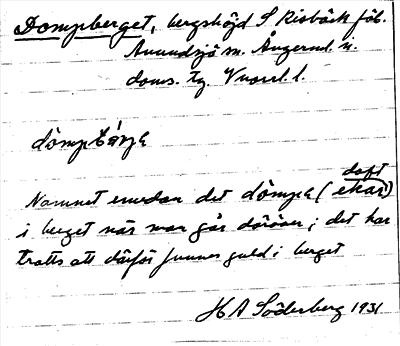 Dompberget, bergshöjd S Risbäck fäb.
Anundsjö sn. Ångerml. n.
doms. tg. Vnorrl. l.
dömpbärje
Namnet emedan det dömpe (doft ekar)
i berget när man går däröver; det har
trotts att därför funnes guld i berget
H A Söderberg 1931